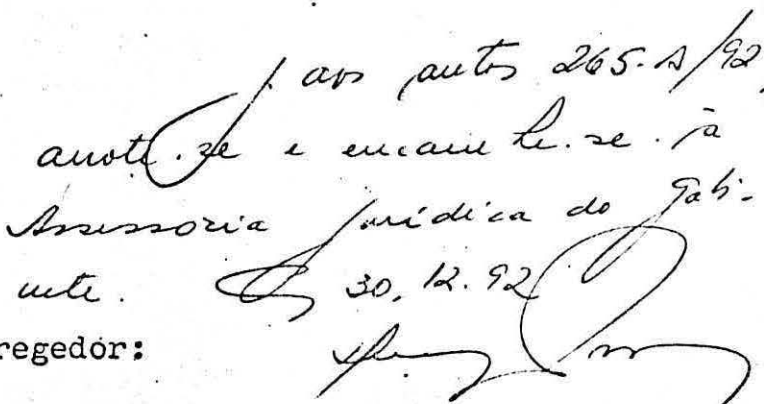 J. aos autos 265-A/92,
anote.se e encaminhe.se à
Assessoria Jurídica do Gabi-
nete. 30.12.92
regedor: